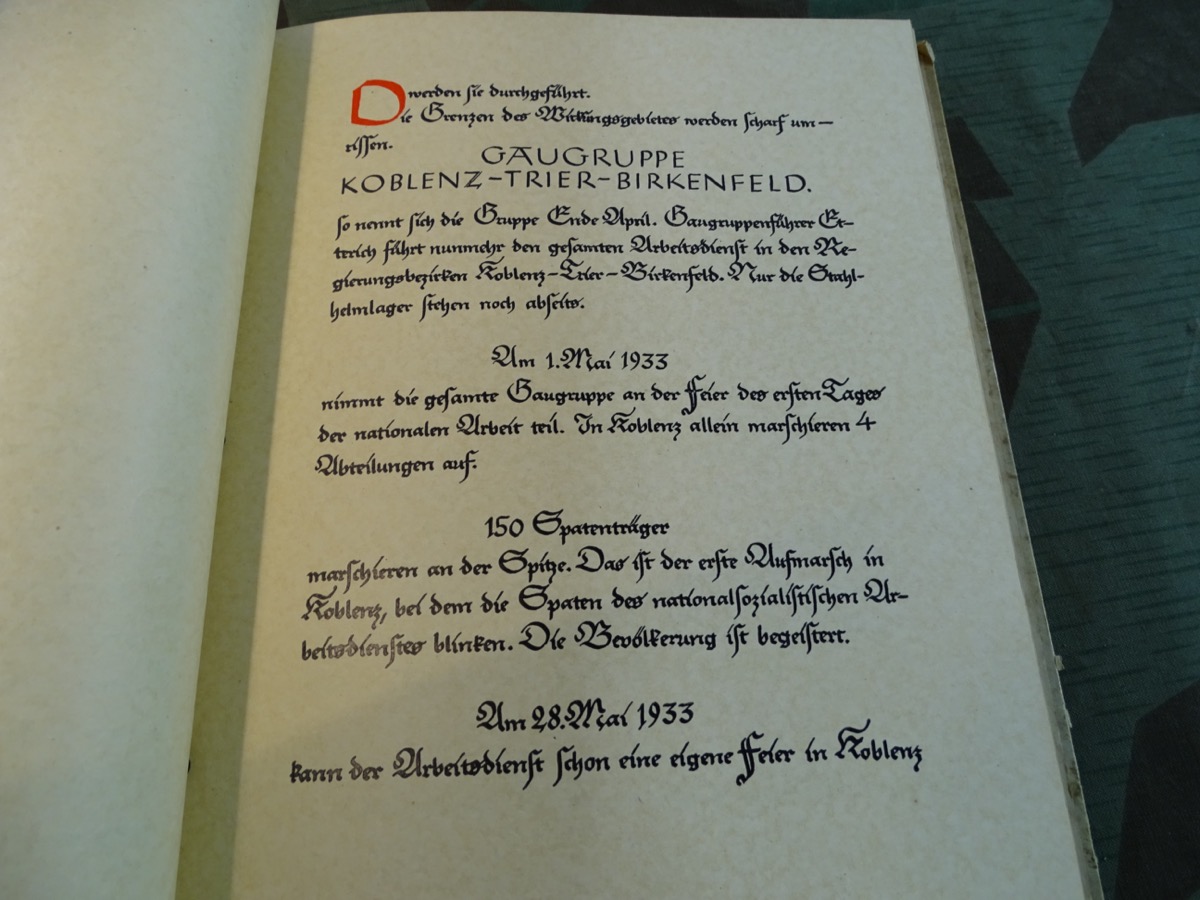 werden sie durchgeführt.
Die Grenzen des Wirkungsgebietes werden scharf um-
rissen.
GAUGRUPPE
KOBLENZ-TRIER-BIRKENFELD.
so nennt sich die Gruppe Ende April. Gaugruppenführer Et-
terich führt nunmehr den gesamten Arbeitsdienst in den Re-
gierungsbezirken Koblenz-Trier-Birkenfeld. Nur die Stahl-
helmlager stehen noch abseits.
Am 1. Mai 1933
nimmt die gesamte Gaugruppe an der Feier des ersten Tages
der nationalen Arbeit teil. In Koblenz allein marschieren 4
Abteilungen auf.
150 Spatenträger
marschieren an der Spitze. Das ist der erste Aufmarsch in
Koblenz, bei dem die Spaten des nationalsozialistischen Ar-
beitsdienstes blinken. Die Bevölkerung ist begeistert.
Am 28. Mai 1933
kann der Arbeitsdienst schon eine eigene Feier in Koblenz